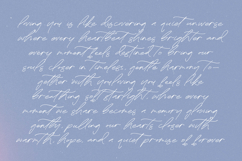 loving you is like discovering a quiet universe
where every heartbeat shines brighter and
every moment feels destined to bring our
souls closer in timeless, gentle harmony To-
gether with you, loving you feels like
breathing soft starlight, where every
moment we share becomes a memory glowing
gently, pulling our hearts closer with
warmth, hope and a quiet promise of forever